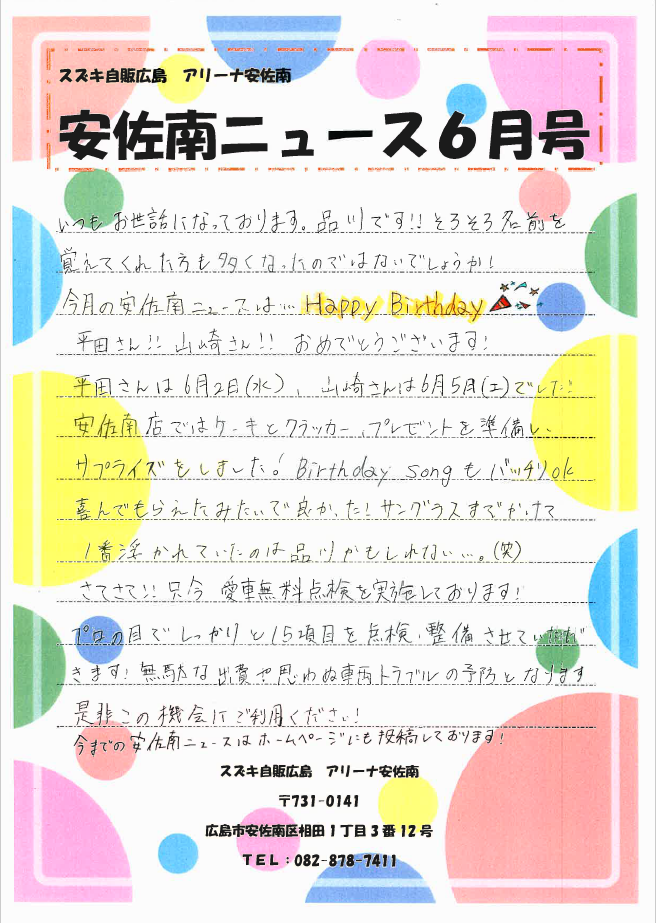 スズキ自販広島　アリーナ安佐南
安佐南ニュース６月号
いつもお世話になっております。品川です!! そろそろ名前を
覚えてくれた方も多くなったのではないでしょうか!
今月の安佐南ニュースは… Happy Birthday
平田さん!! 山崎さん!! おめでとうございます!
平田さんは6月2日(水)、山崎さんは6月5日(土)でした!
安佐南店ではケーキとクラッカー、プレゼントを準備し、
サプライズをしました! Birthday songもバッチリok
喜んでもらえたみたいで良かった! サングラスまでかけて
1番浮かれていたのは品川かもしれない…。(笑)
さてさて!! 只今 愛車無料点検を実施しております!
プロの目でしっかりと15項目を点検、整備させていただ
きます! 無駄な出費や思わぬ車両トラブルの予防となります
是非この機会にご利用ください!
今までの安佐南ニュースはホームページにも投稿しております!
スズキ自販広島　アリーナ安佐南
〒731-0141
広島市安佐南区相田１丁目３番12号
ＴＥＬ：082-878-7411